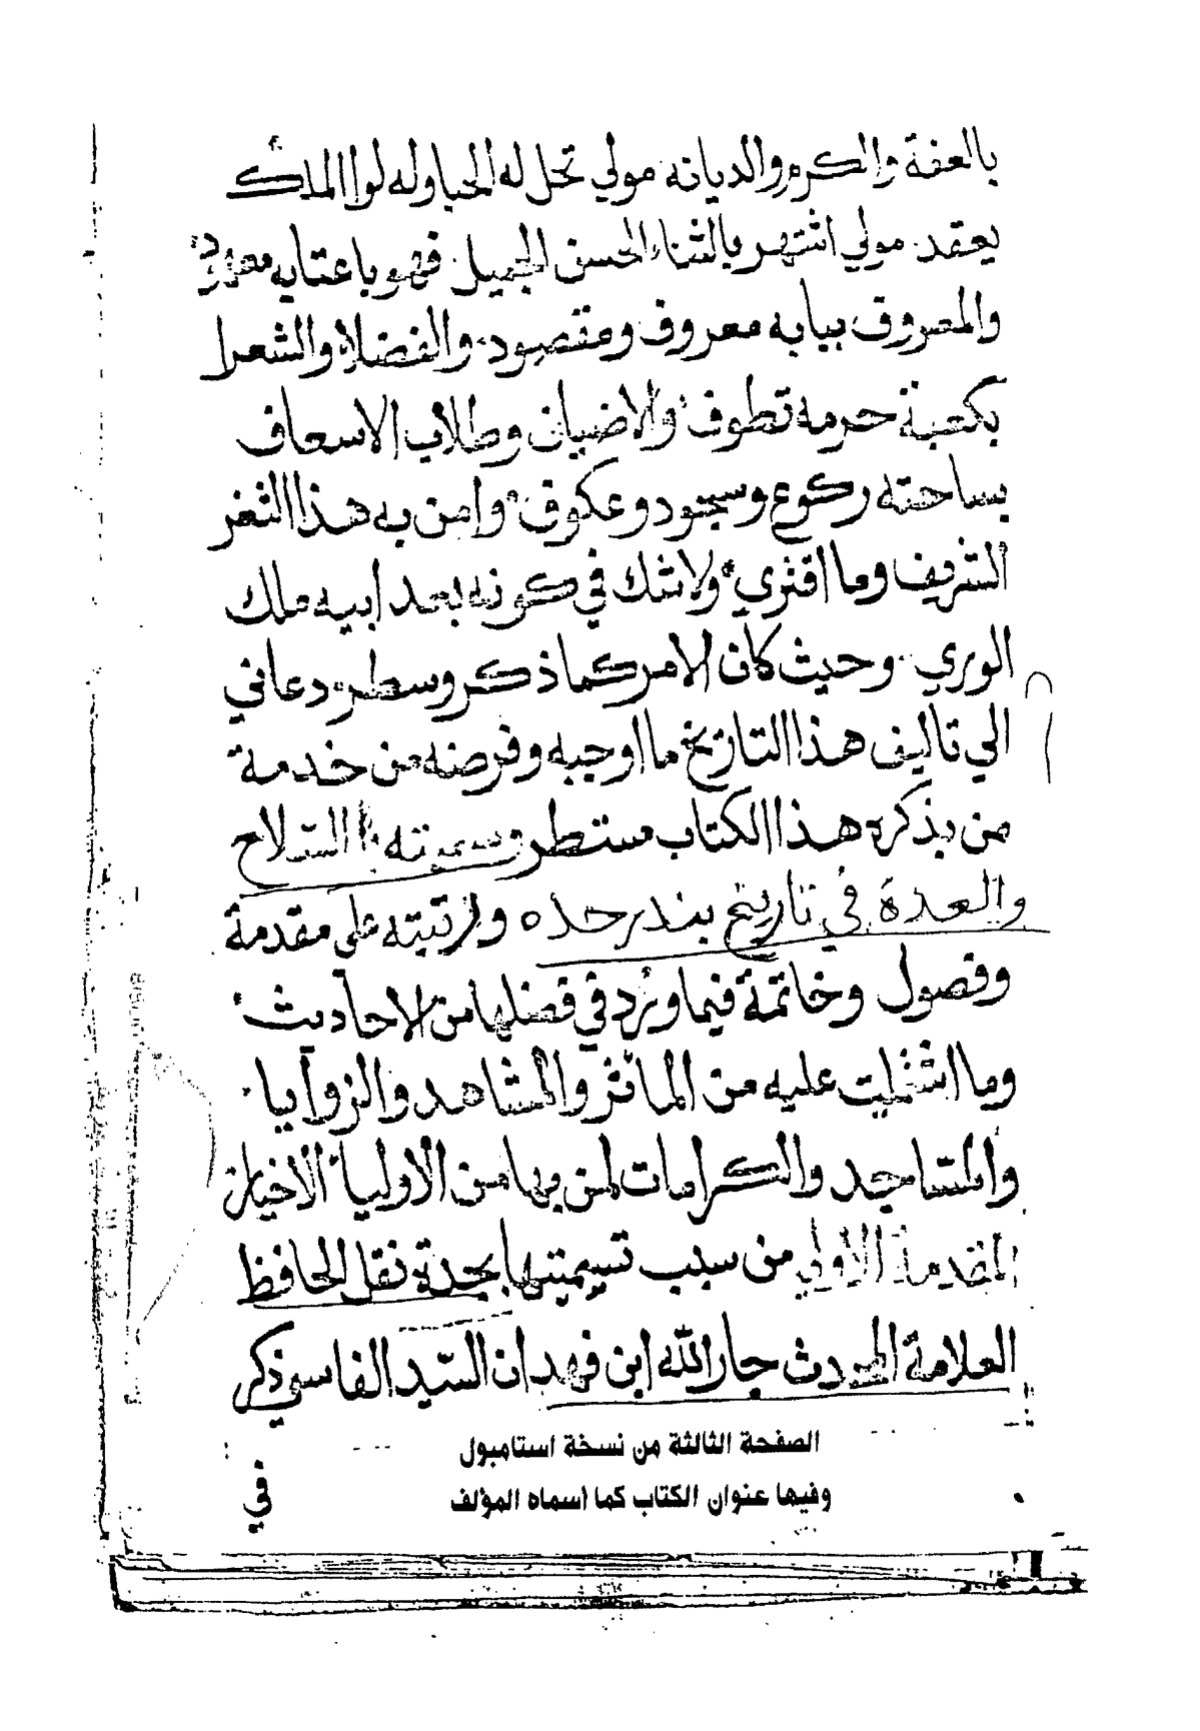 بالعفة والكرم والديانه مولي تحل له الحبا وله لوا الملك
يعقد مولي اشتهر بالثناء الحسن الجميل فهو باعتابه
والمعروف ببابه معروف ومقصود والفضلاء والشعرا
بكعبة حرمه تطوف والاضياف وطلاب الاسعاف
بساحته ركوع وسجود وعكوف وامن به هذا الثغر
الشريف وما اقتري ولا شك في كونه بعد ابيه ملك
الوري وحيث كان الامر كما ذكر وسطر دعاني
الي تاليف هذا التاريخ ما اوجبه وفرضه من خدمة
من بذكره هذا الكتاب مستطر وسميته السلاح
والعدة في تاريخ بندر جده ورتبته على مقدمة
وفصول وخاتمة فيما ورد في فضلها من الاحاديث
وما اشتملت عليه من الماثر والمشاهد والزوايا
والمساجد والكرامات لمن بها من الاوليا الاخيار
المقدمة الاولي من سبب تسميتها بجدة نقل الحافظ
العلامة المحدث جار الله ابن فهد ان السيد الفاسي ذكر
في
الصفحة الثالثة من نسخة استامبول
وفيها عنوان الكتاب كما أسماه المؤلف